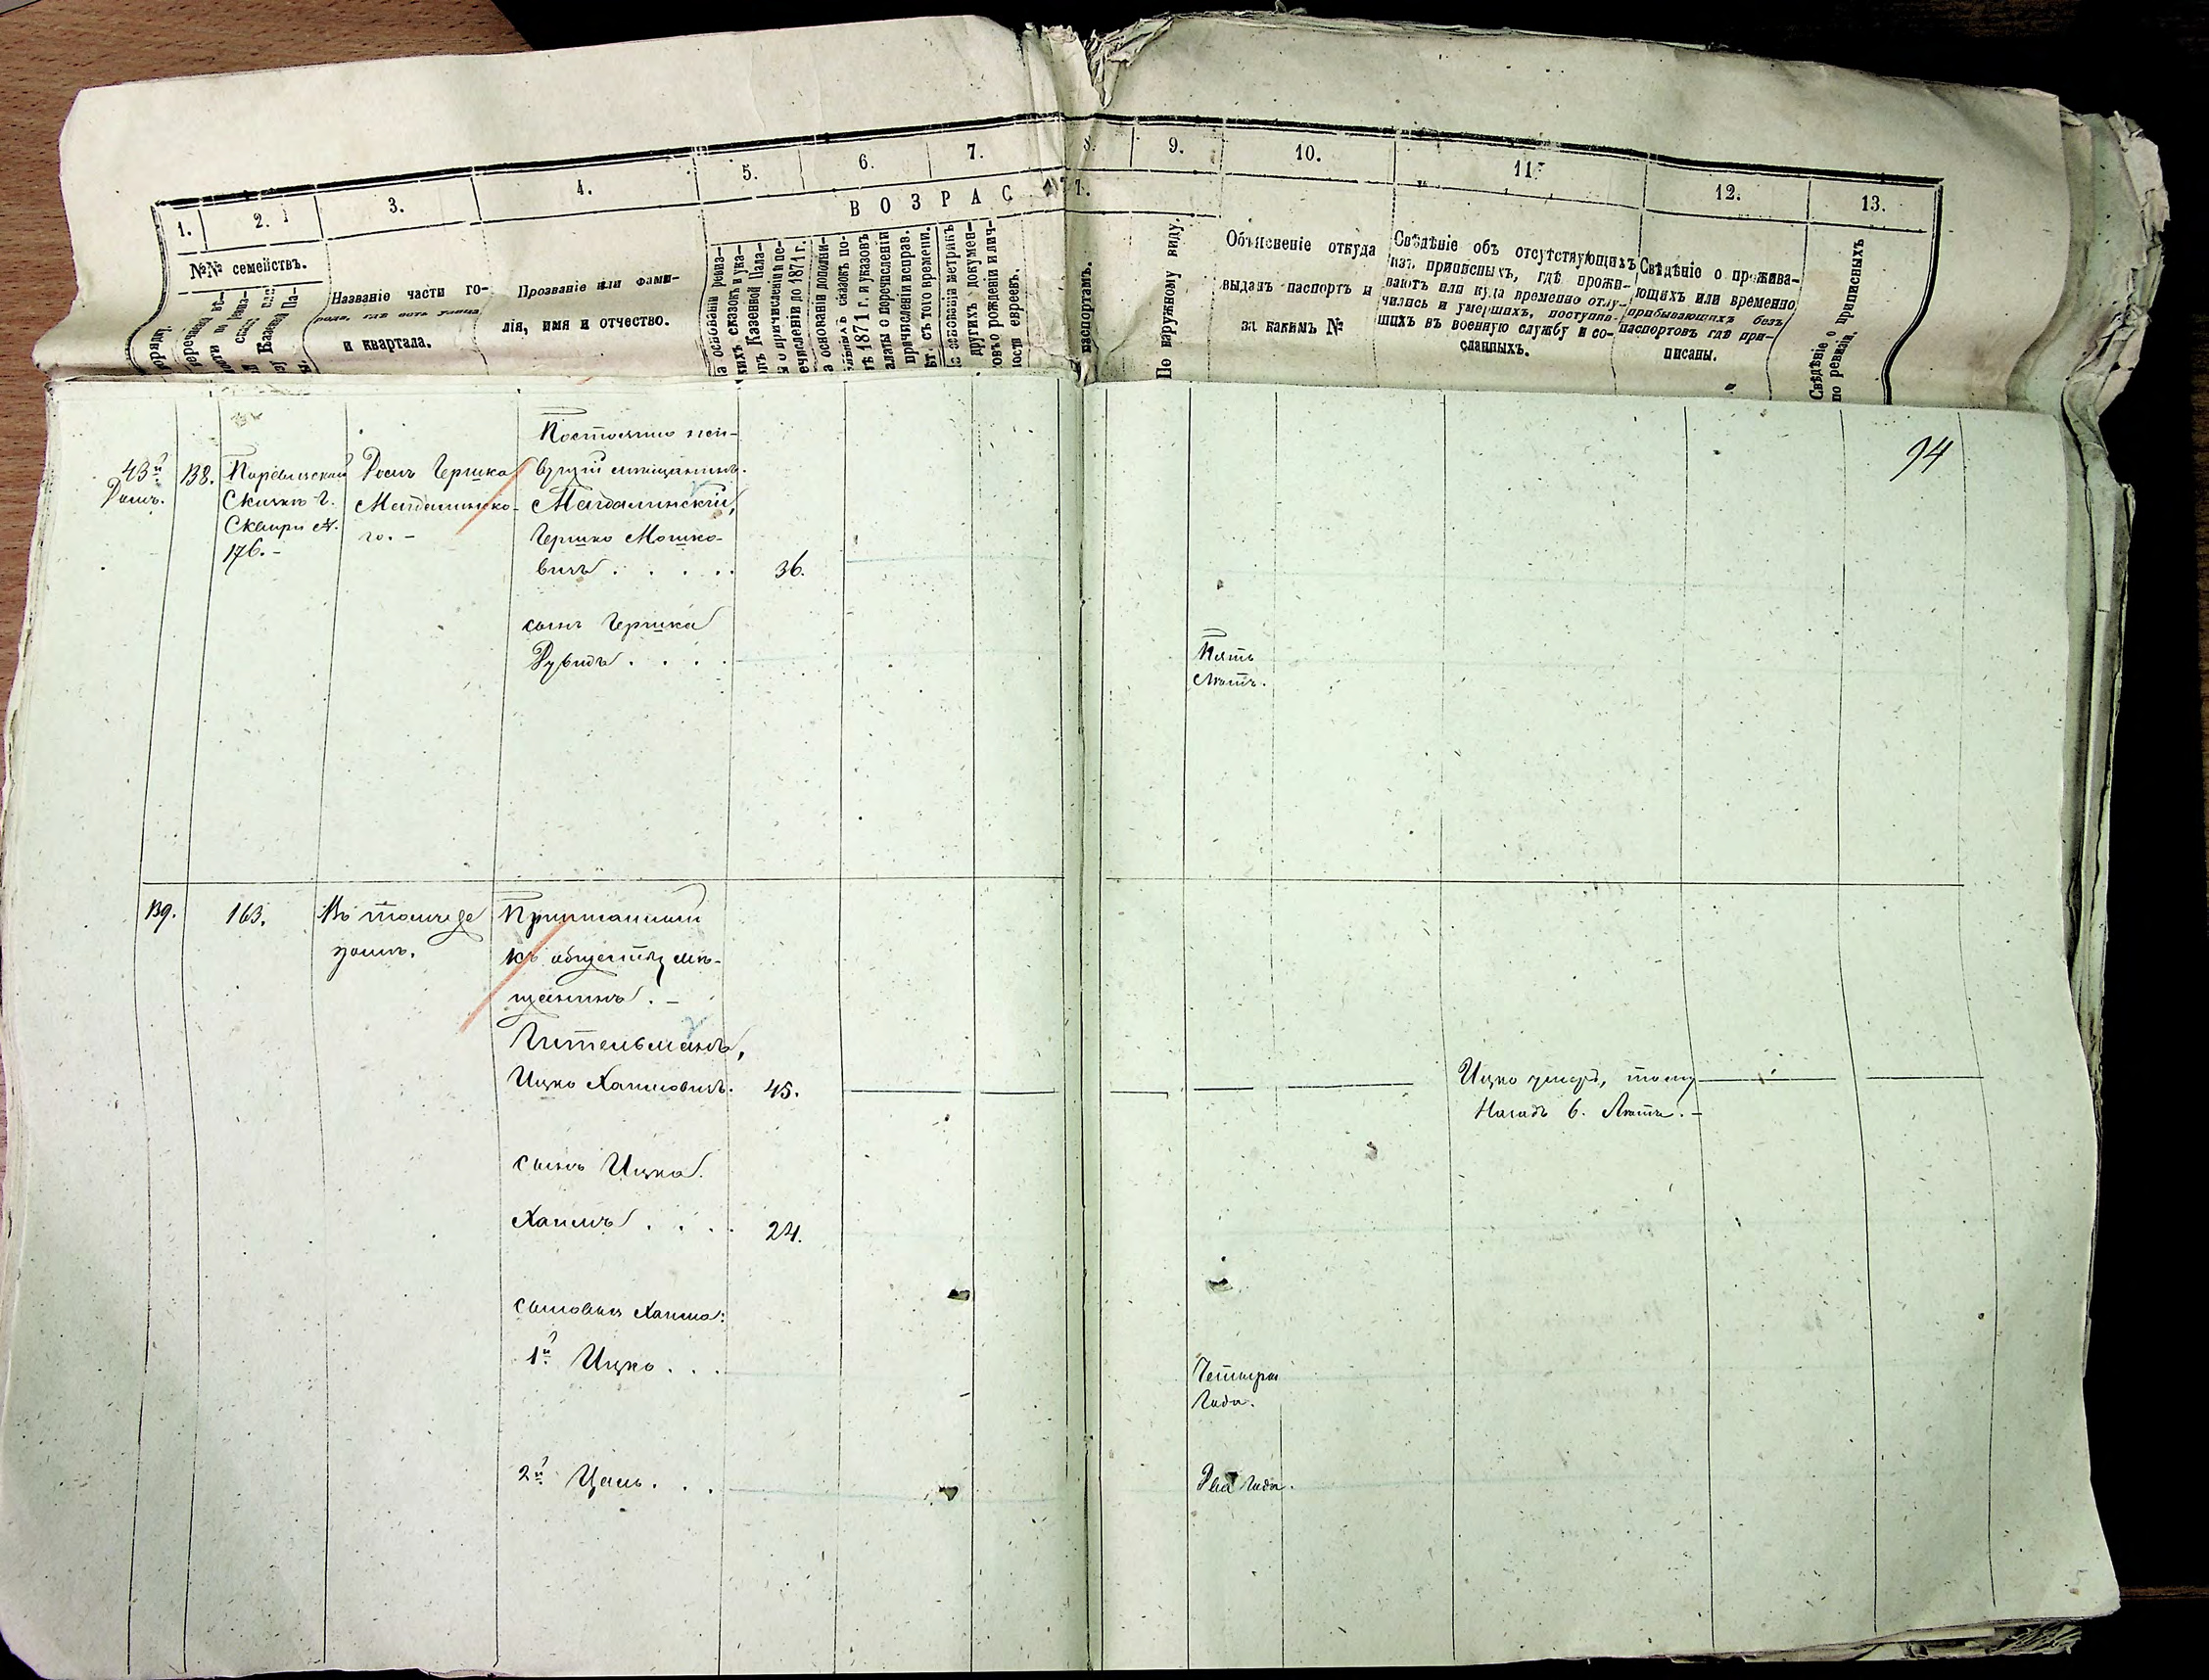 1. 2. 3. 4. 5. 6. 7. 8. 9. 10. 11. 12. 13.
ВОЗРАСТ.
№№ семействъ.
Названіе части го-
рода, гдѣ есть улица
и квартала.
Прозваніе или фами-
лія, имя и отчество.
паспортамъ.
По наружному виду.
Объясненіе откуда
выданъ паспортъ и
за какимъ №
Свѣдѣніе объ отсутствующихъ
изъ приписныхъ, гдѣ прожи-
ваютъ или куда временно отлу-
чились и умершихъ, поступив-
шихъ въ военную службу и со-
сланныхъ.
Свѣдѣніе о прожива-
ющихъ или временно
прибывающихъ безъ
паспортовъ гдѣ при-
писаны.
Свѣдѣніе о приписныхъ
по ревизіи.
94
43й
Домъ.
138.
Сквиры №
176.-
Домъ Гершка
Магдалинско-
го. -
Постоянно
мѣщанинъ.
Магдалинскій,
Гершко Мошко-
вичъ . . . . 36.
сынъ Гершка
Рувидъ . . . .
Пять
Лѣтъ.
139.
163.
Въ томъ же
домѣ.
Приписанный
къ обществу мѣ-
щанинъ. -
Гительманъ,
Ицко Хаимовичъ. 45.
Ицко умеръ, тому
Назадъ 6. Лѣтъ. -
сынъ Ицка.
Хаимъ . . . . 24.
сыновья Хаима:
1й Ицко . . .
Четыри
Года.
2й Цаль . . .
Два Года.